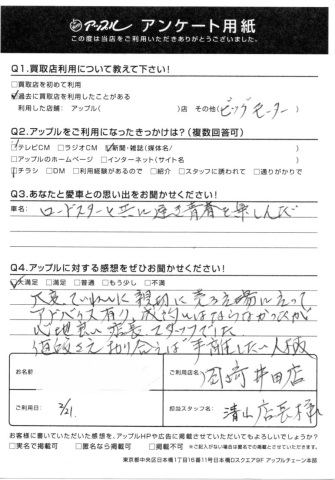 アップル アンケート用紙
この度は当店をご利用いただきありがとうございました。
Q1.買取店利用について教えて下さい!
□買取店を初めて利用
☑過去に買取店を利用したことがある
利用した店舗: アップル( )店 その他(ビッグモーター)
Q2.アップルをご利用になったきっかけは?(複数回答可)
☑テレビCM □ラジオCM ☑新聞・雑誌(媒体名/ )
□アップルのホームページ □インターネット(サイト名 )
☑チラシ □DM □利用経験があるので □紹介 □スタッフに誘われて □通りがかりで
Q3.あなたと愛車との思い出をお聞かせください!
車名: ロードスターと共に遅き青春を楽しんだ
Q4.アップルに対する感想をぜひお聞かせください!
☑大満足 □満足 □普通 □もう少し □不満
大変ていねいに親切に売る立場に立って
アドバイス有り、成約しなければならなかったが
心地良い店長、スタッフでした
値段さえ折り合えば手離したい人柄
お名前
ご利用店名 岡崎井田店
ご利用日: 2/21.
担当スタッフ名: 清山店長様
お客様に書いていただいた感想を、アップルHPや広告に掲載させていただいてもよろしいでしょうか?
□実名で掲載可 □匿名なら掲載可 □掲載不可 ※ご記入がない場合は匿名での掲載とさせていただきます。
東京都中央区日本橋1丁目16番11号日本橋Dスクエア9F アップルチェーン本部